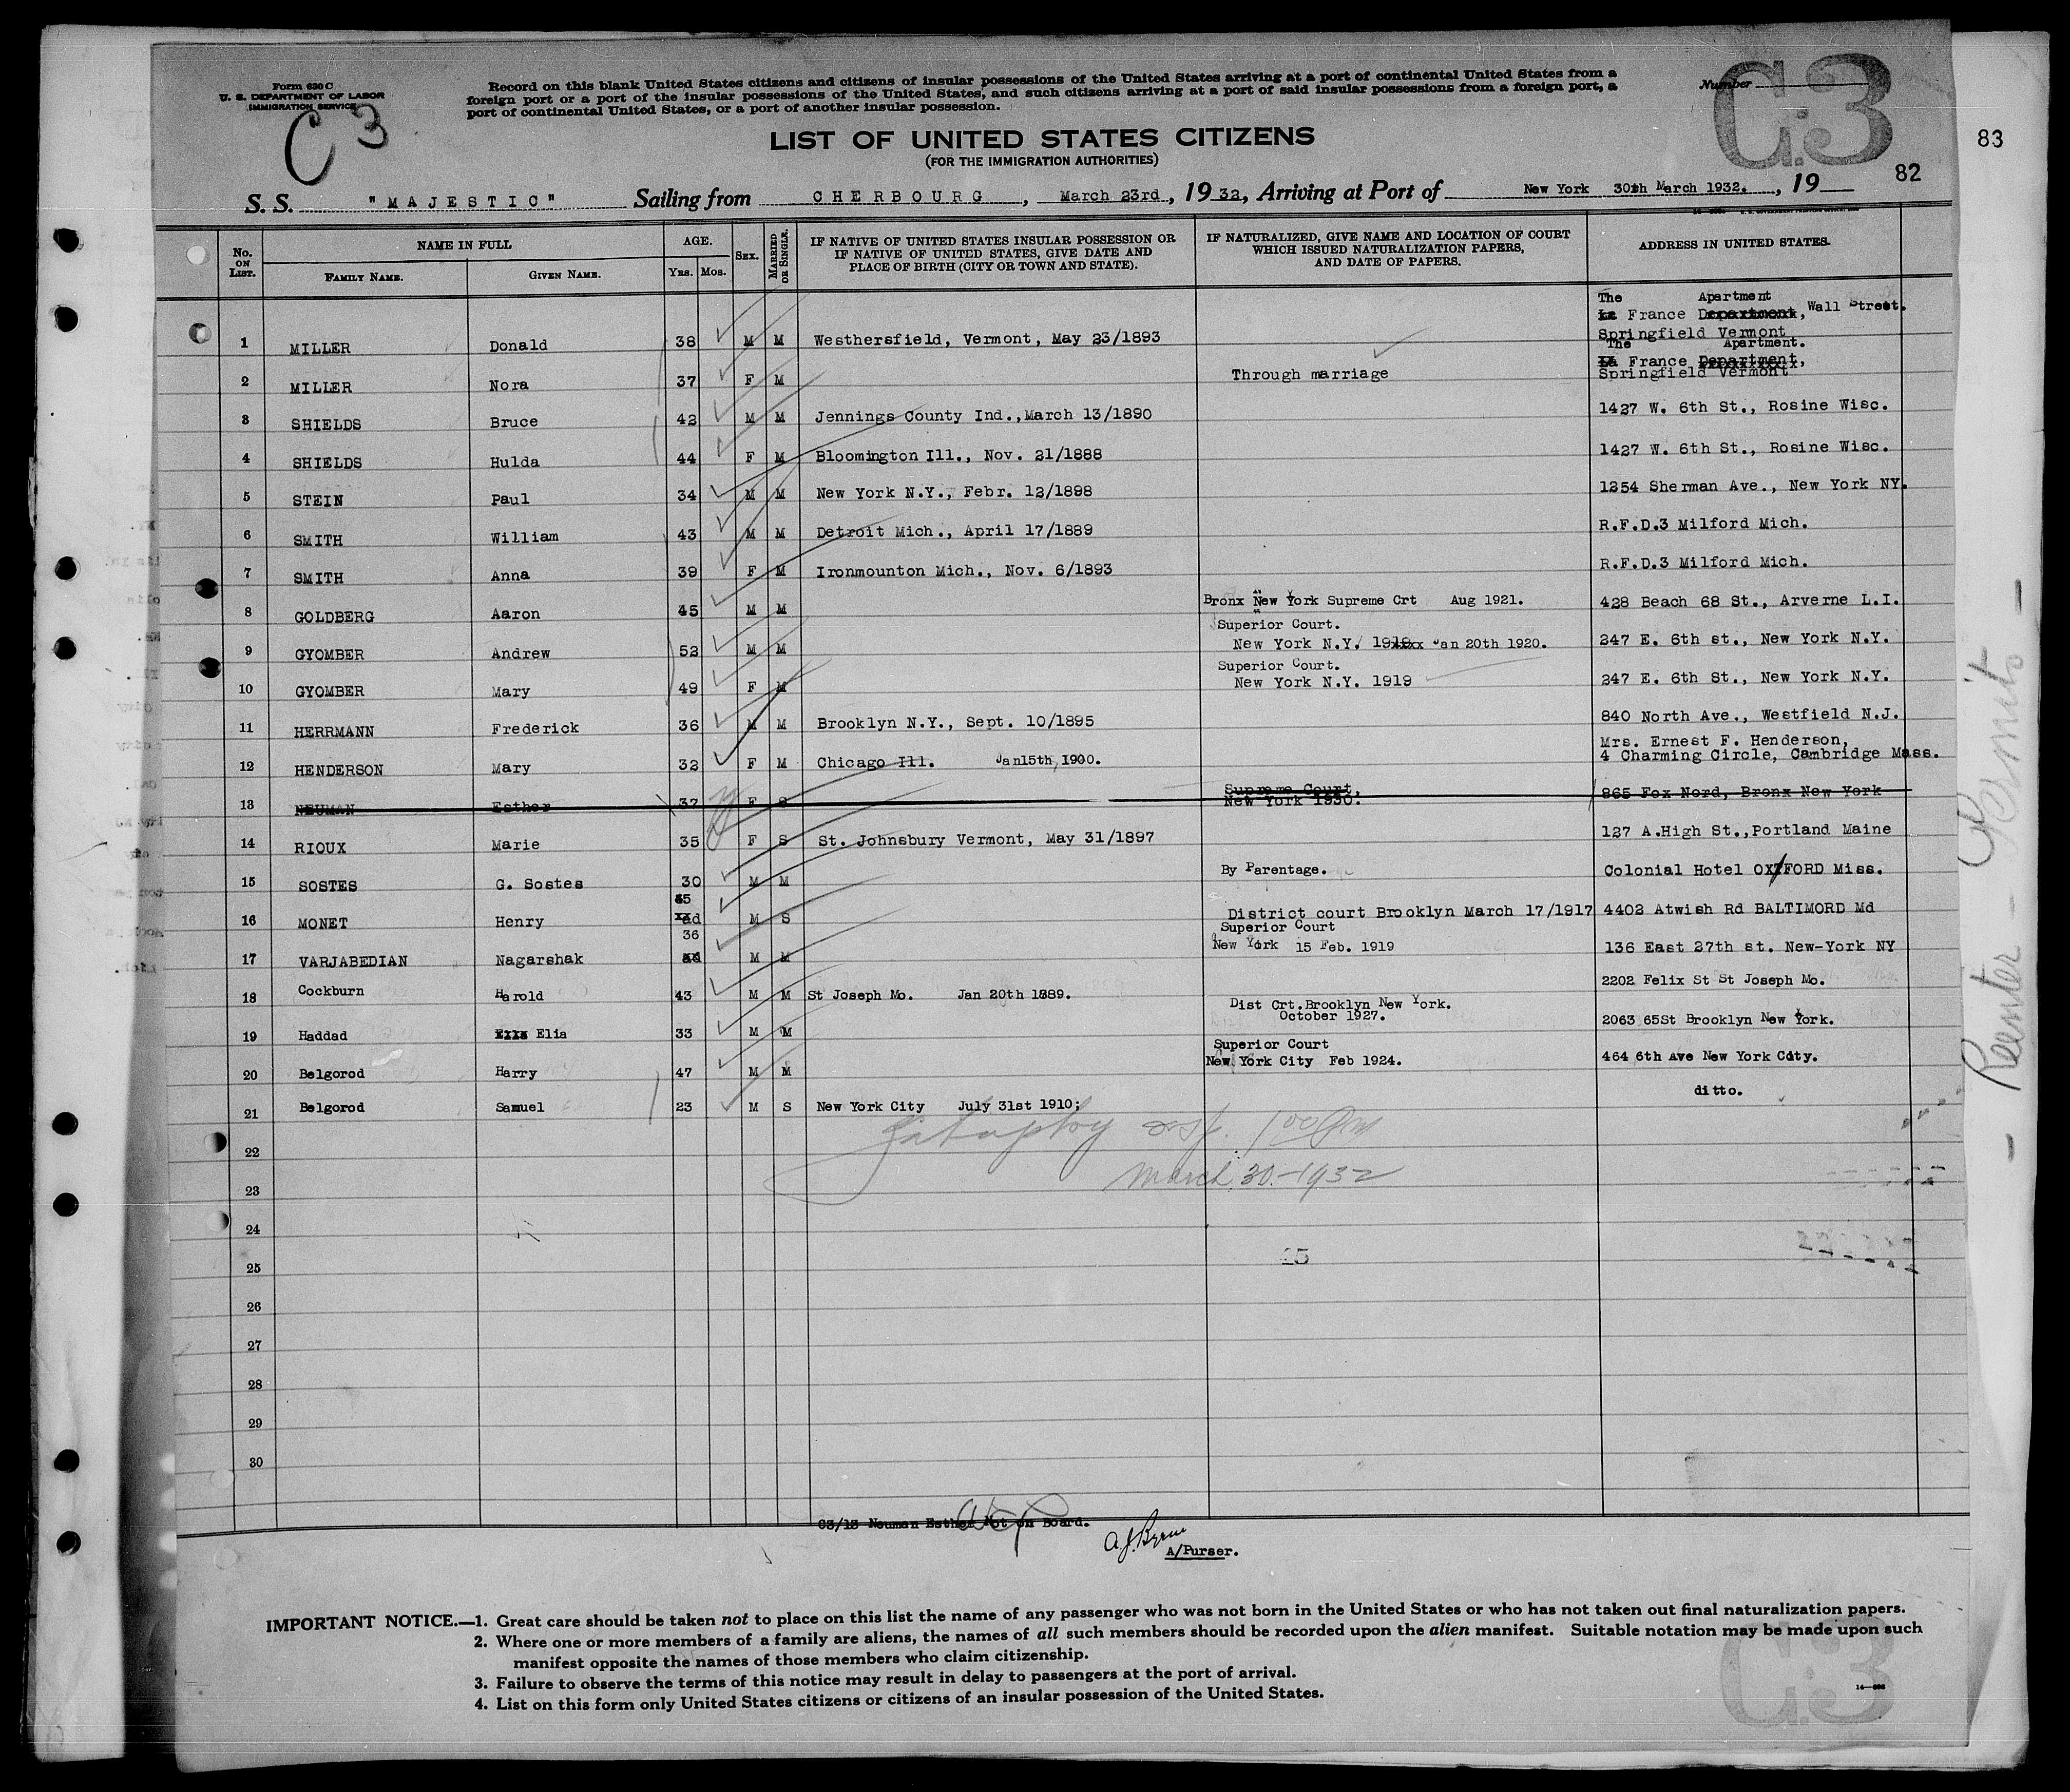 Form 630 C
U. S. DEPARTMENT OF LABOR
IMMIGRATION SERVICE
C 3
Record on this blank United States citizens and citizens of insular possessions of the United States arriving at a port of continental United States from a
foreign port or a port of the insular possessions of the United States, and such citizens arriving at a port of said insular possessions from a foreign port, a
port of continental United States, or a port of another insular possession.
Number
C.3
83
82
LIST OF UNITED STATES CITIZENS
(FOR THE IMMIGRATION AUTHORITIES)
S. S. "MAJESTIC" Sailing from CHERBOURG, March 23rd, 1932, Arriving at Port of New York 30th March 1932., 19
No. ON LIST. NAME IN FULL FAMILY NAME. GIVEN NAME. AGE. YRS. MOS. SEX. MARRIED OR SINGLE. IF NATIVE OF UNITED STATES INSULAR POSSESSION OR IF NATIVE OF UNITED STATES, GIVE DATE AND PLACE OF BIRTH (CITY OR TOWN AND STATE). IF NATURALIZED, GIVE NAME AND LOCATION OF COURT WHICH ISSUED NATURALIZATION PAPERS, AND DATE OF PAPERS. ADDRESS IN UNITED STATES.
The Apartment
La France Department, Wall Street.
1 MILLER Donald 38 M M Westhersfield, Vermont, May 23/1893 Springfield Vermont
The Apartment.
La France Department,
2 MILLER Nora 37 F M Through marriage Springfield Vermont
3 SHIELDS Bruce 42 M M Jennings County Ind., March 13/1890 1427 W. 6th St., Rosine Wisc.
4 SHIELDS Hulda 44 F M Bloomington Ill., Nov. 21/1888 1427 W. 6th St., Rosine Wisc.
5 STEIN Paul 34 M M New York N.Y., Febr. 12/1898 1254 Sherman Ave., New York NY.
6 SMITH William 43 M M Detroit Mich., April 17/1889 R.F.D.3 Milford Mich.
7 SMITH Anna 39 F M Ironmounton Mich., Nov. 6/1893 R.F.D.3 Milford Mich.
8 GOLDBERG Aaron 45 M M Bronx New York Supreme Crt Aug 1921. 428 Beach 68 St., Arverne L.I.
Superior Court.
9 GYOMBER Andrew 52 M M New York N.Y. 1919 xxx Jan 20th 1920. 247 E. 6th st., New York N.Y.
Superior Court.
10 GYOMBER Mary 49 F M New York N.Y. 1919 247 E. 6th St., New York N.Y.
11 HERRMANN Frederick 36 M M Brooklyn N.Y., Sept. 10/1895 840 North Ave., Westfield N.J.
Mrs. Ernest F. Henderson,
12 HENDERSON Mary 32 F M Chicago Ill. Jan15th,1900. 4 Charming Circle, Cambridge Mass.
Supreme Court,
13 NEUMAN Esther 37 F S New York 1930. 865 Fox Nord, Bronx New York
14 RIOUX Marie 35 F S St. Johnsbury Vermont, May 31/1897 127 A.High St.,Portland Maine
15 SOSTES G. Sostes 30 M M By Parentage. Colonial Hotel OXTFORD Miss.
16 MONET Henry ad M S District court Brooklyn March 17/1917 4402 Atwish Rd BALTIMORD Md
36 Superior Court
17 VARJABEDIAN Nagarshak ad M M New York 15 Feb. 1919 136 East 27th st. New-York NY
18 Cockburn Harold 43 M M St Joseph Mo. Jan 20th 1889. 2202 Felix St St Joseph Mo.
Dist Crt.Brooklyn New York.
19 Haddad Elia 33 M M October 1927. 2063 65St Brooklyn New York.
Superior Court
20 Belgorod Harry 47 M M New York City Feb 1924. 464 6th Ave New York City.
21 Belgorod Samuel 23 M S New York City July 31st 1910; ditto.
22
March 30-1932
23
24
25
26
27
28
29
30
C3/13 Neuman Esther Not on Board.
A.J. Byrne
A/Purser.
IMPORTANT NOTICE.—1. Great care should be taken not to place on this list the name of any passenger who was not born in the United States or who has not taken out final naturalization papers.
2. Where one or more members of a family are aliens, the names of all such members should be recorded upon the alien manifest. Suitable notation may be made upon such
manifest opposite the names of those members who claim citizenship.
3. Failure to observe the terms of this notice may result in delay to passengers at the port of arrival.
4. List on this form only United States citizens or citizens of an insular possession of the United States.
C.3